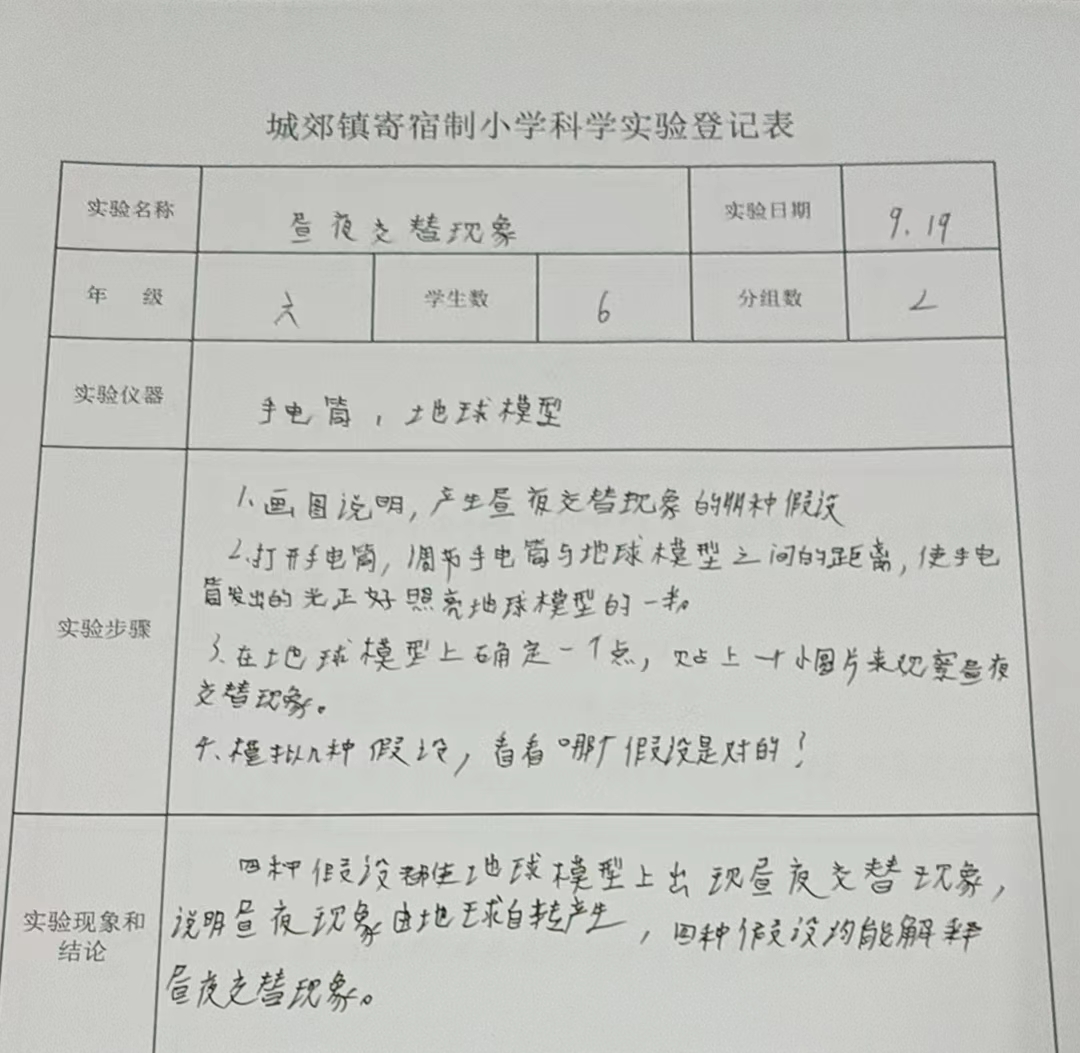 城郊镇寄宿制小学科学实验登记表
实验名称 昼夜交替现象 实验日期 9.19
年 级 六 学生数 6 分组数 2
实验仪器 手电筒，地球模型
1.画图说明，产生昼夜交替现象的种假设
2.打开手电筒，调节手电筒与地球模型之间的距离，使手电
筒发出的光正好照亮地球模型的一半。
实验步骤
3.在地球模型上确定一个点，贴上一个小图片来观察昼夜
交替现象。
4.模拟几种假设，看看哪个假设是对的？
四种假设都能在地球模型上出现昼夜交替现象，
实验现象和
说明昼夜现象由地球自转产生，四种假设均能解释
结论
昼夜交替现象。